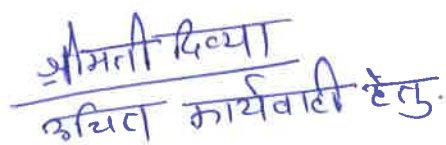 श्रीमती दिव्या
उचित कार्यवाही हेतु.